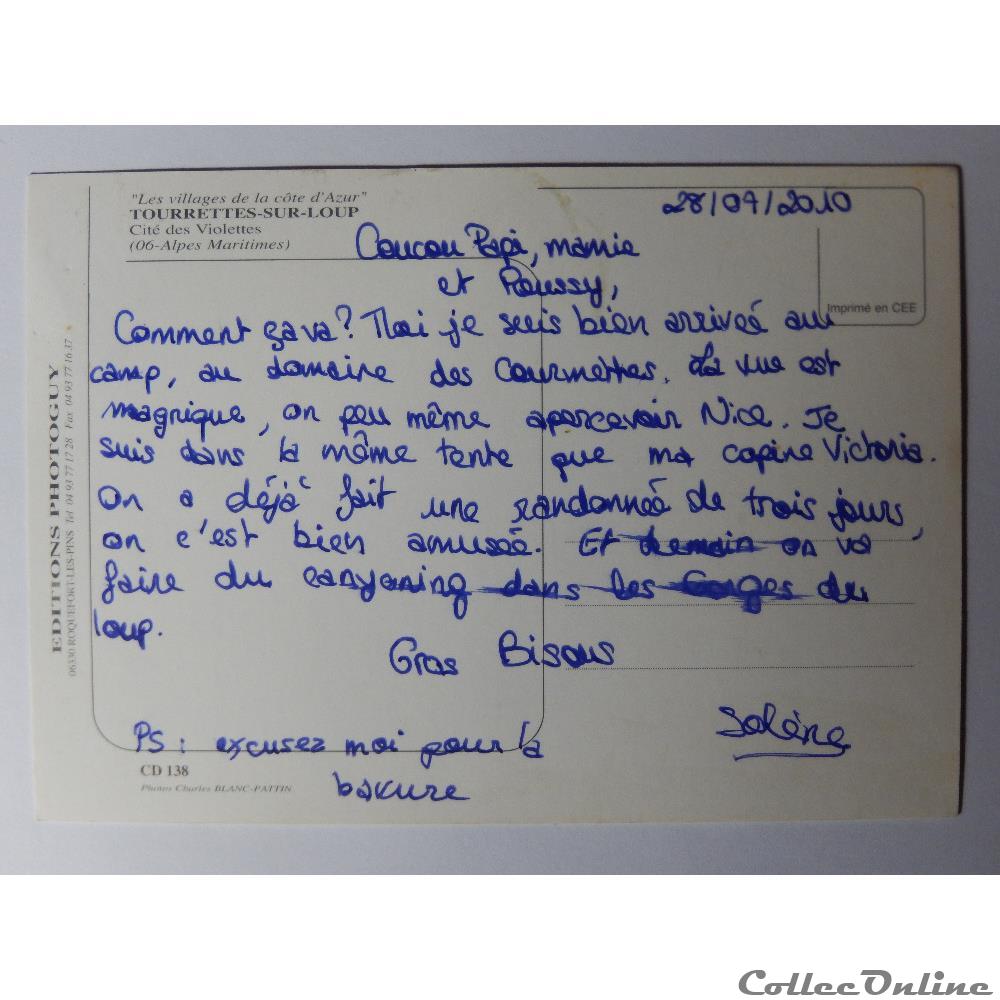 "Les villages de la côte d'Azur"
TOURRETTES-SUR-LOUP
Cité des Violettes
(06-Alpes Maritimes)
28/07/2010
Imprimé en CEE
Coucou Papi, mamie
et Poussy,
Comment ça va? Moi je suis bien arriveé au
camp, au domaine des Courmettes. La vue est
magnique, on peu même apercevoir Nice. Je
suis dans la même tente que ma copine Victoria.
On a déjà fait une randonneé de trois jours,
on c'est bien amuseé. Et demain on va
faire du canyoning dans les Gorges du
loup.
Gros Bisous
Solène
PS : excusez moi pour la
bavure
CD 138
Photos Charles BLANC-PATTIN
EDITIONS PHOTOGUY
06330 ROQUEFORT-LES-PINS Tél 04 93 77 17 28 Fax 04 93 77 16 37
CollecOnline